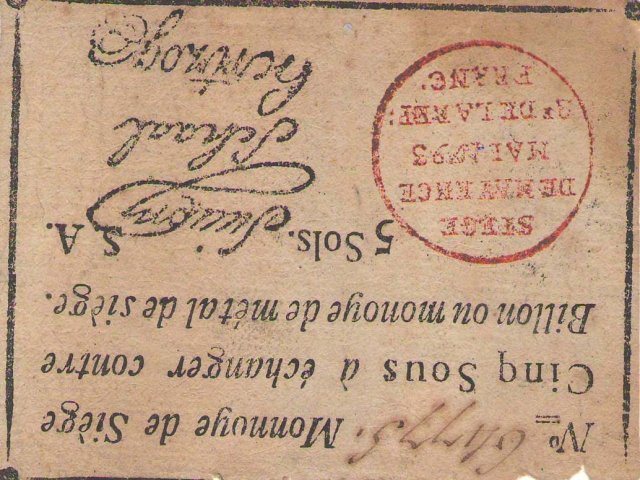 Nº 64775. Monnoye de Siège
Cinq Sous à échanger contre
Billon ou monoye de métal de siège.
5 Sols. S A.
SIEGE
DE MAYENCE
MAI. 1793
2ᵉ DE LA REP:
FRANC.
Schaal